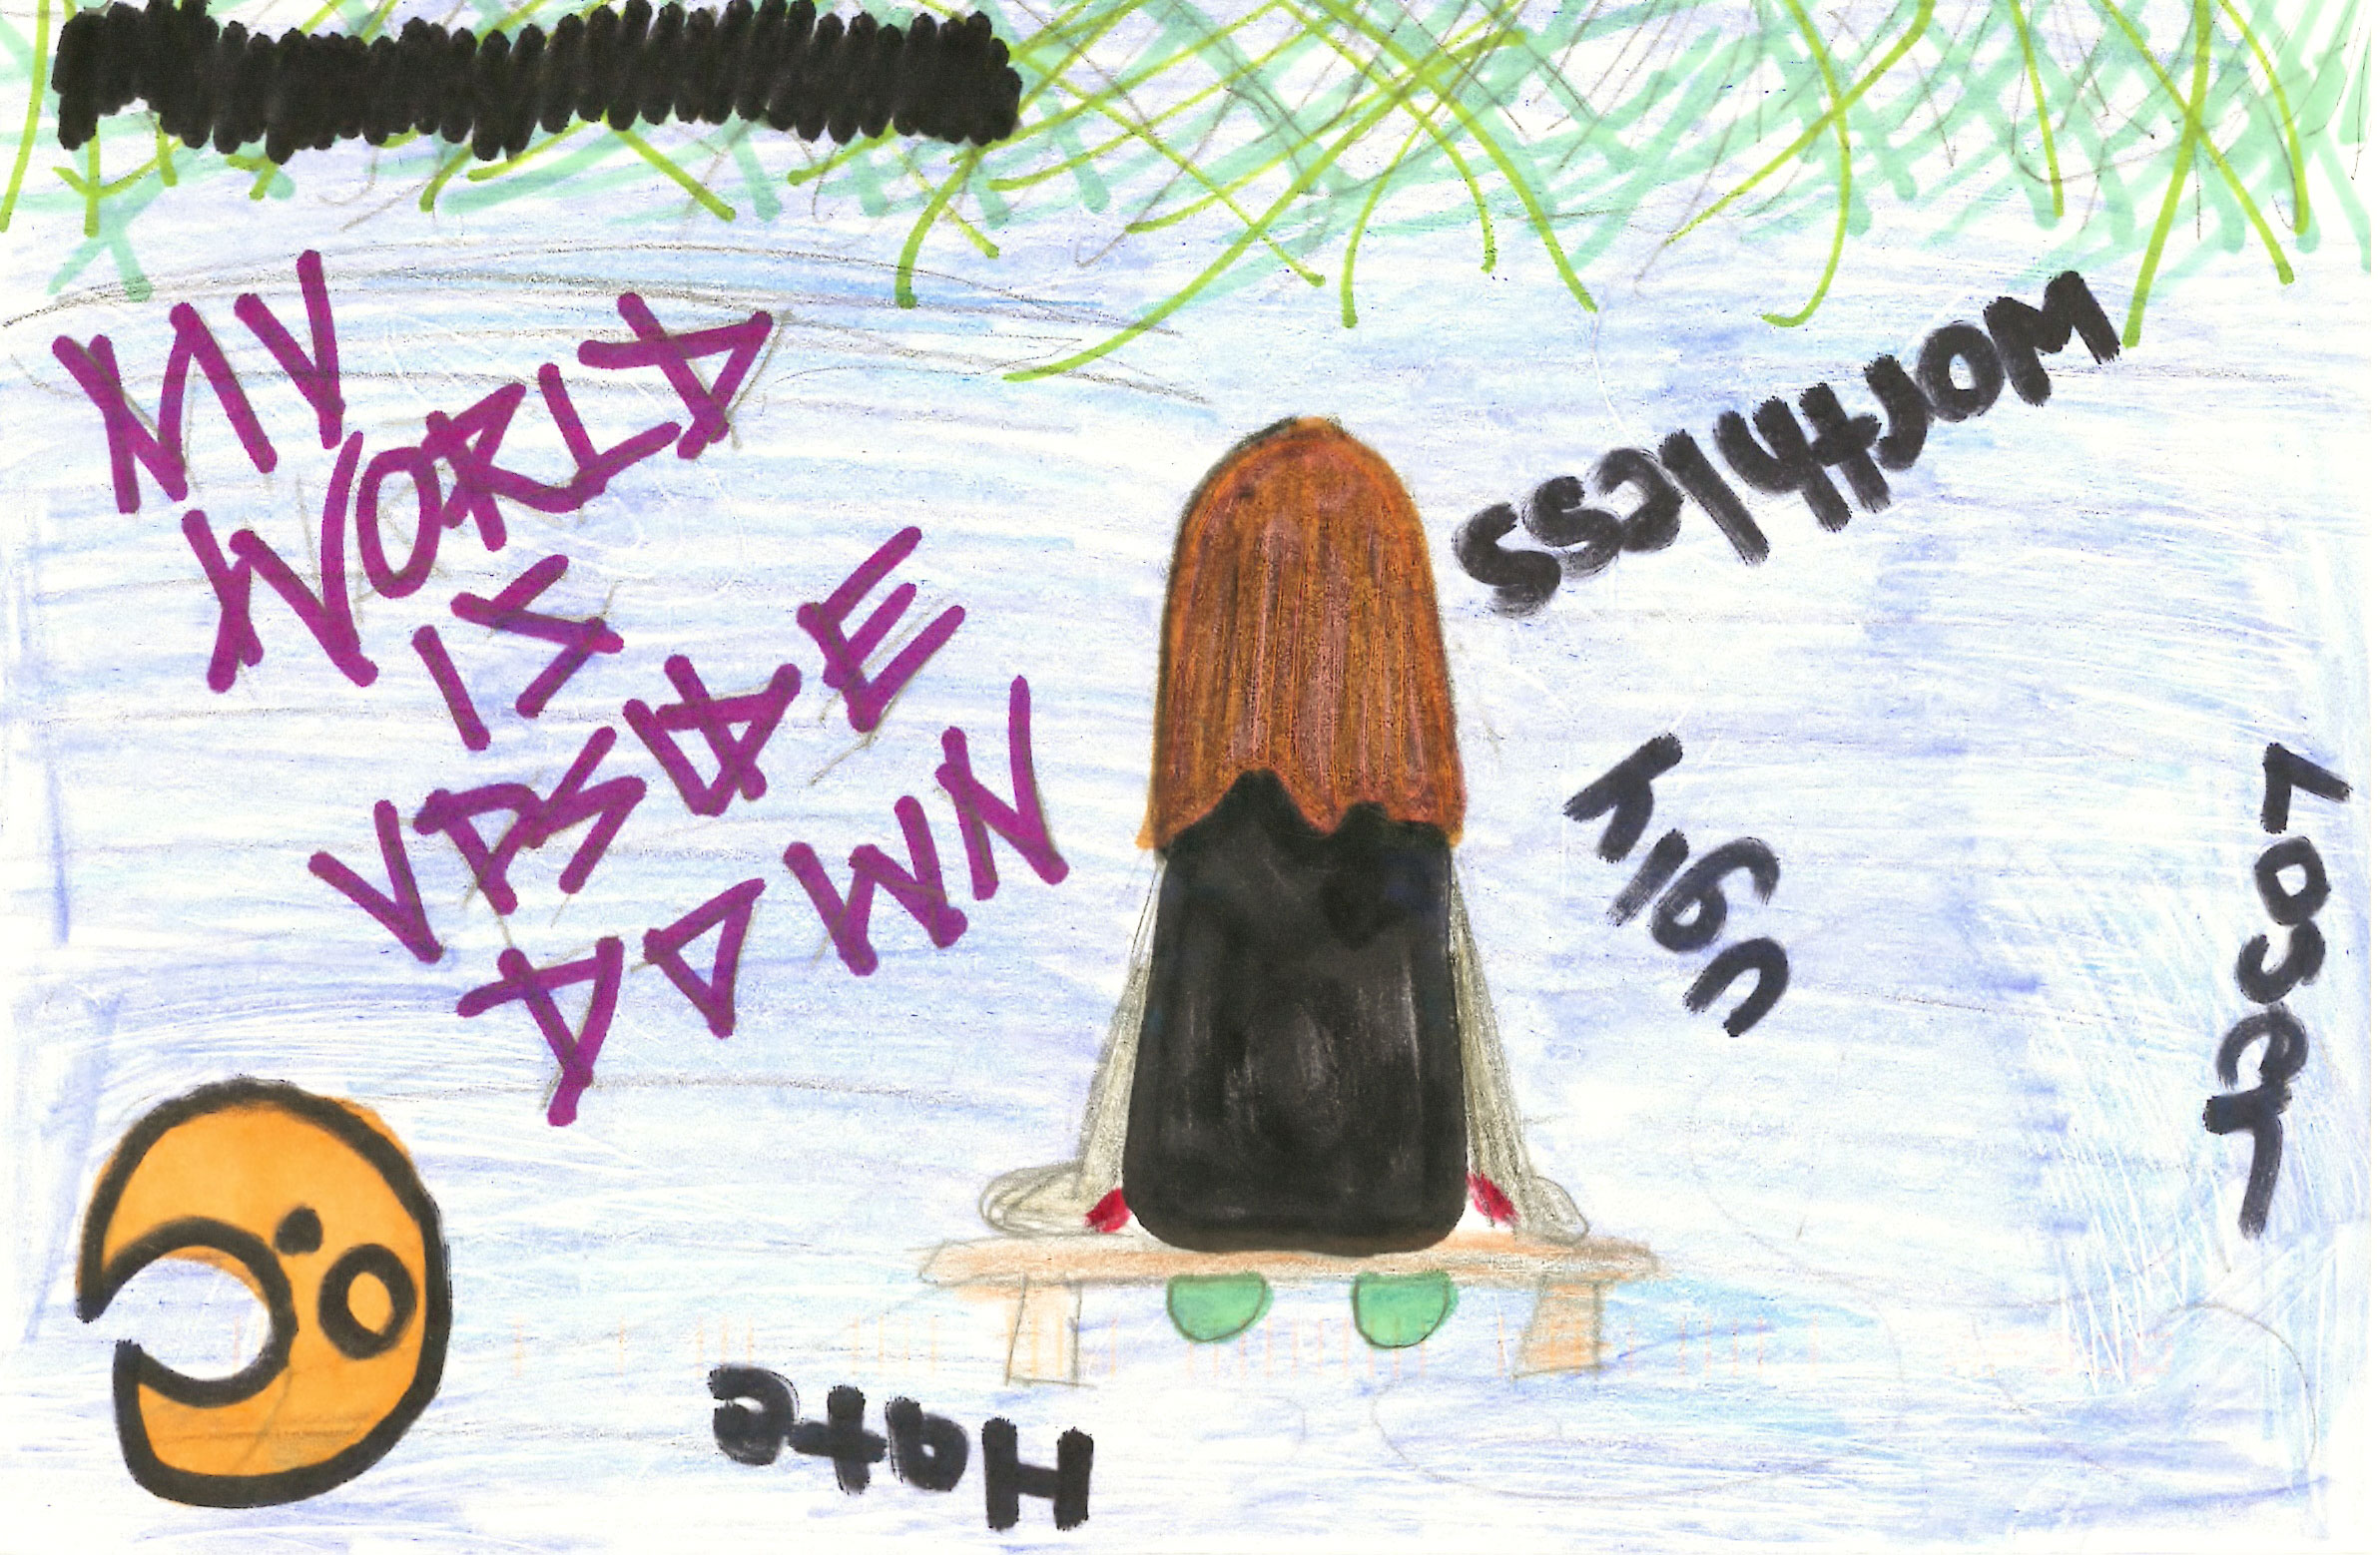 MY
WORLD
IS
UPSIDE
DOWN
Worthless
Ugly
Loser
Hate